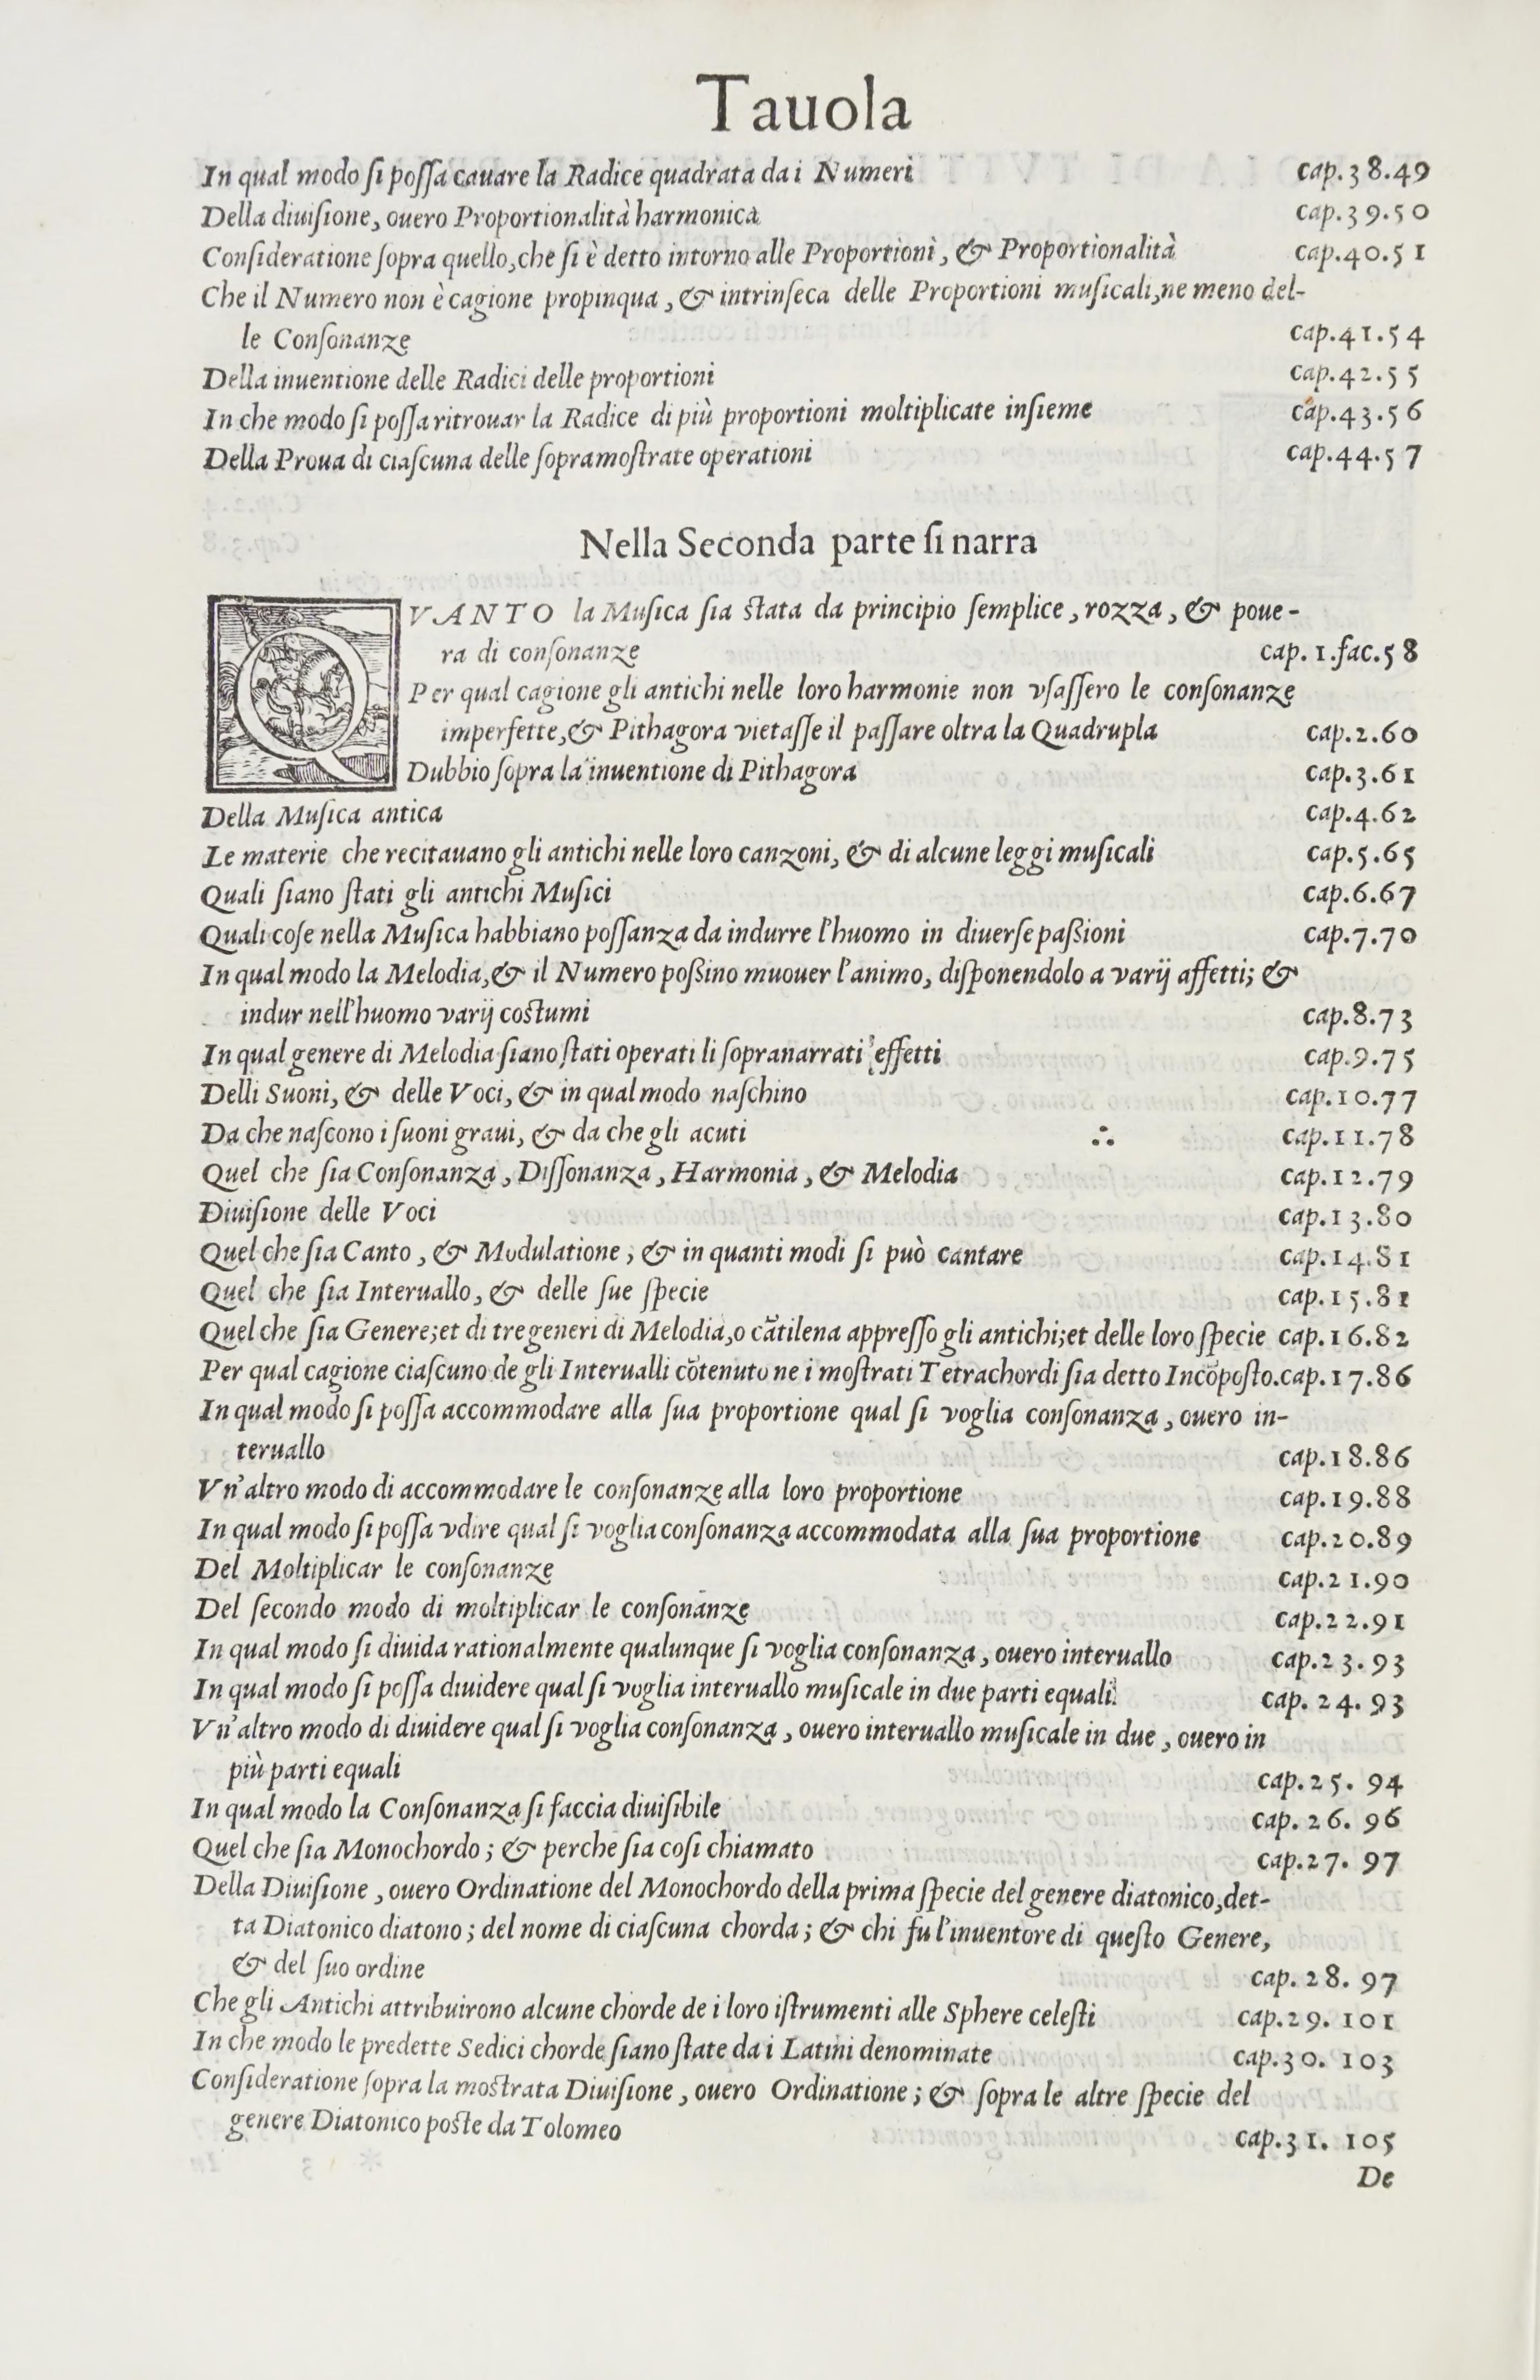 Tauola
In qual modo ſi poſſa cauare la Radice quadrata da i Numeri cap.38.49
Della diuiſione, ouero Proportionalità harmonica cap.39.50
Conſideratione ſopra quello, che ſi è detto intorno alle Proportioni, & Proportionalità cap.40.51
Che il Numero non è cagione propinqua, & intrinſeca delle Proportioni muſicali, ne meno del-
le Conſonanze cap.41.54
Della inuentione delle Radici delle proportioni cap.42.55
In che modo ſi poſſa ritrouar la Radice di più proportioni moltiplicate inſieme cap.43.56
Della Proua di ciaſcuna delle ſopramoſtrate operationi cap.44.57
Nella Seconda parte ſi narra
QVANTO la Muſica ſia ſtata da principio ſemplice, rozza, & poue-
ra di conſonanze cap. 1.fac.58
Per qual cagione gli antichi nelle loro harmonie non vſaſſero le conſonanze
imperfette, & Pithagora vietaſſe il paſſare oltra la Quadrupla cap.2.60
Dubbio ſopra la inuentione di Pithagora cap.3.61
Della Muſica antica cap.4.62
Le materie che recitauano gli antichi nelle loro canzoni, & di alcune leggi muſicali cap.5.65
Quali ſiano ſtati gli antichi Muſici cap.6.67
Quali coſe nella Muſica habbiano poſſanza da indurre l'huomo in diuerſe paßioni cap.7.70
In qual modo la Melodia, & il Numero poßino muouer l'animo, diſponendolo a varij affetti; &
indur nell'huomo varij coſtumi cap.8.73
In qual genere di Melodia ſiano ſtati operati li ſopranarrati effetti cap.9.75
Delli Suoni, & delle Voci, & in qual modo naſchino cap.10.77
Da che naſcono i ſuoni graui, & da che gli acuti ∴ cap.11.78
Quel che ſia Conſonanza, Diſſonanza, Harmonia, & Melodia cap.12.79
Diuiſione delle Voci cap.13.80
Quel che ſia Canto, & Modulatione, & in quanti modi ſi può cantare cap.14.81
Quel che ſia Interuallo, & delle ſue ſpecie cap.15.81
Quel che ſia Genere; et di tre generi di Melodia, o cãtilena appreſſo gli antichi; et delle loro ſpecie cap.16.82
Per qual cagione ciaſcuno de gli Interualli cõtenuto ne i moſtrati Tetrachordi ſia detto Incõpoſto. cap.17.86
In qual modo ſi poſſa accommodare alla ſua proportione qual ſi voglia conſonanza, ouero in-
teruallo cap.18.86
Vn'altro modo di accommodare le conſonanze alla loro proportione cap.19.88
In qual modo ſi poſſa vdire qual ſi voglia conſonanza accommodata alla ſua proportione cap.20.89
Del Moltiplicar le conſonanze cap.21.90
Del ſecondo modo di moltiplicar le conſonanze cap.22.91
In qual modo ſi diuida rationalmente qualunque ſi voglia conſonanza, ouero interuallo cap.23.93
In qual modo ſi poſſa diuidere qual ſi voglia interuallo muſicale in due parti equali. cap. 24. 93
Vn'altro modo di diuidere qual ſi voglia conſonanza, ouero interuallo muſicale in due, ouero in
più parti equali cap.25. 94
In qual modo la Conſonanza ſi faccia diuiſibile cap. 26. 96
Quel che ſia Monochordo; & perche ſia coſi chiamato cap.27. 97
Della Diuiſione, ouero Ordinatione del Monochordo della prima ſpecie del genere diatonico, det-
ta Diatonico diatono; del nome di ciaſcuna chorda; & chi fu l'inuentore di queſto Genere,
& del ſuo ordine cap. 28. 97
Che gli Antichi attribuirono alcune chorde de i loro iſtrumenti alle Sphere celeſti cap.29. 101
In che modo le predette Sedici chorde ſiano ſtate da i Latini denominate cap.30. 103
Conſideratione ſopra la moſtrata Diuiſione, ouero Ordinatione; & ſopra le altre ſpecie del
genere Diatonico poſte da Tolomeo cap.31. 105
De